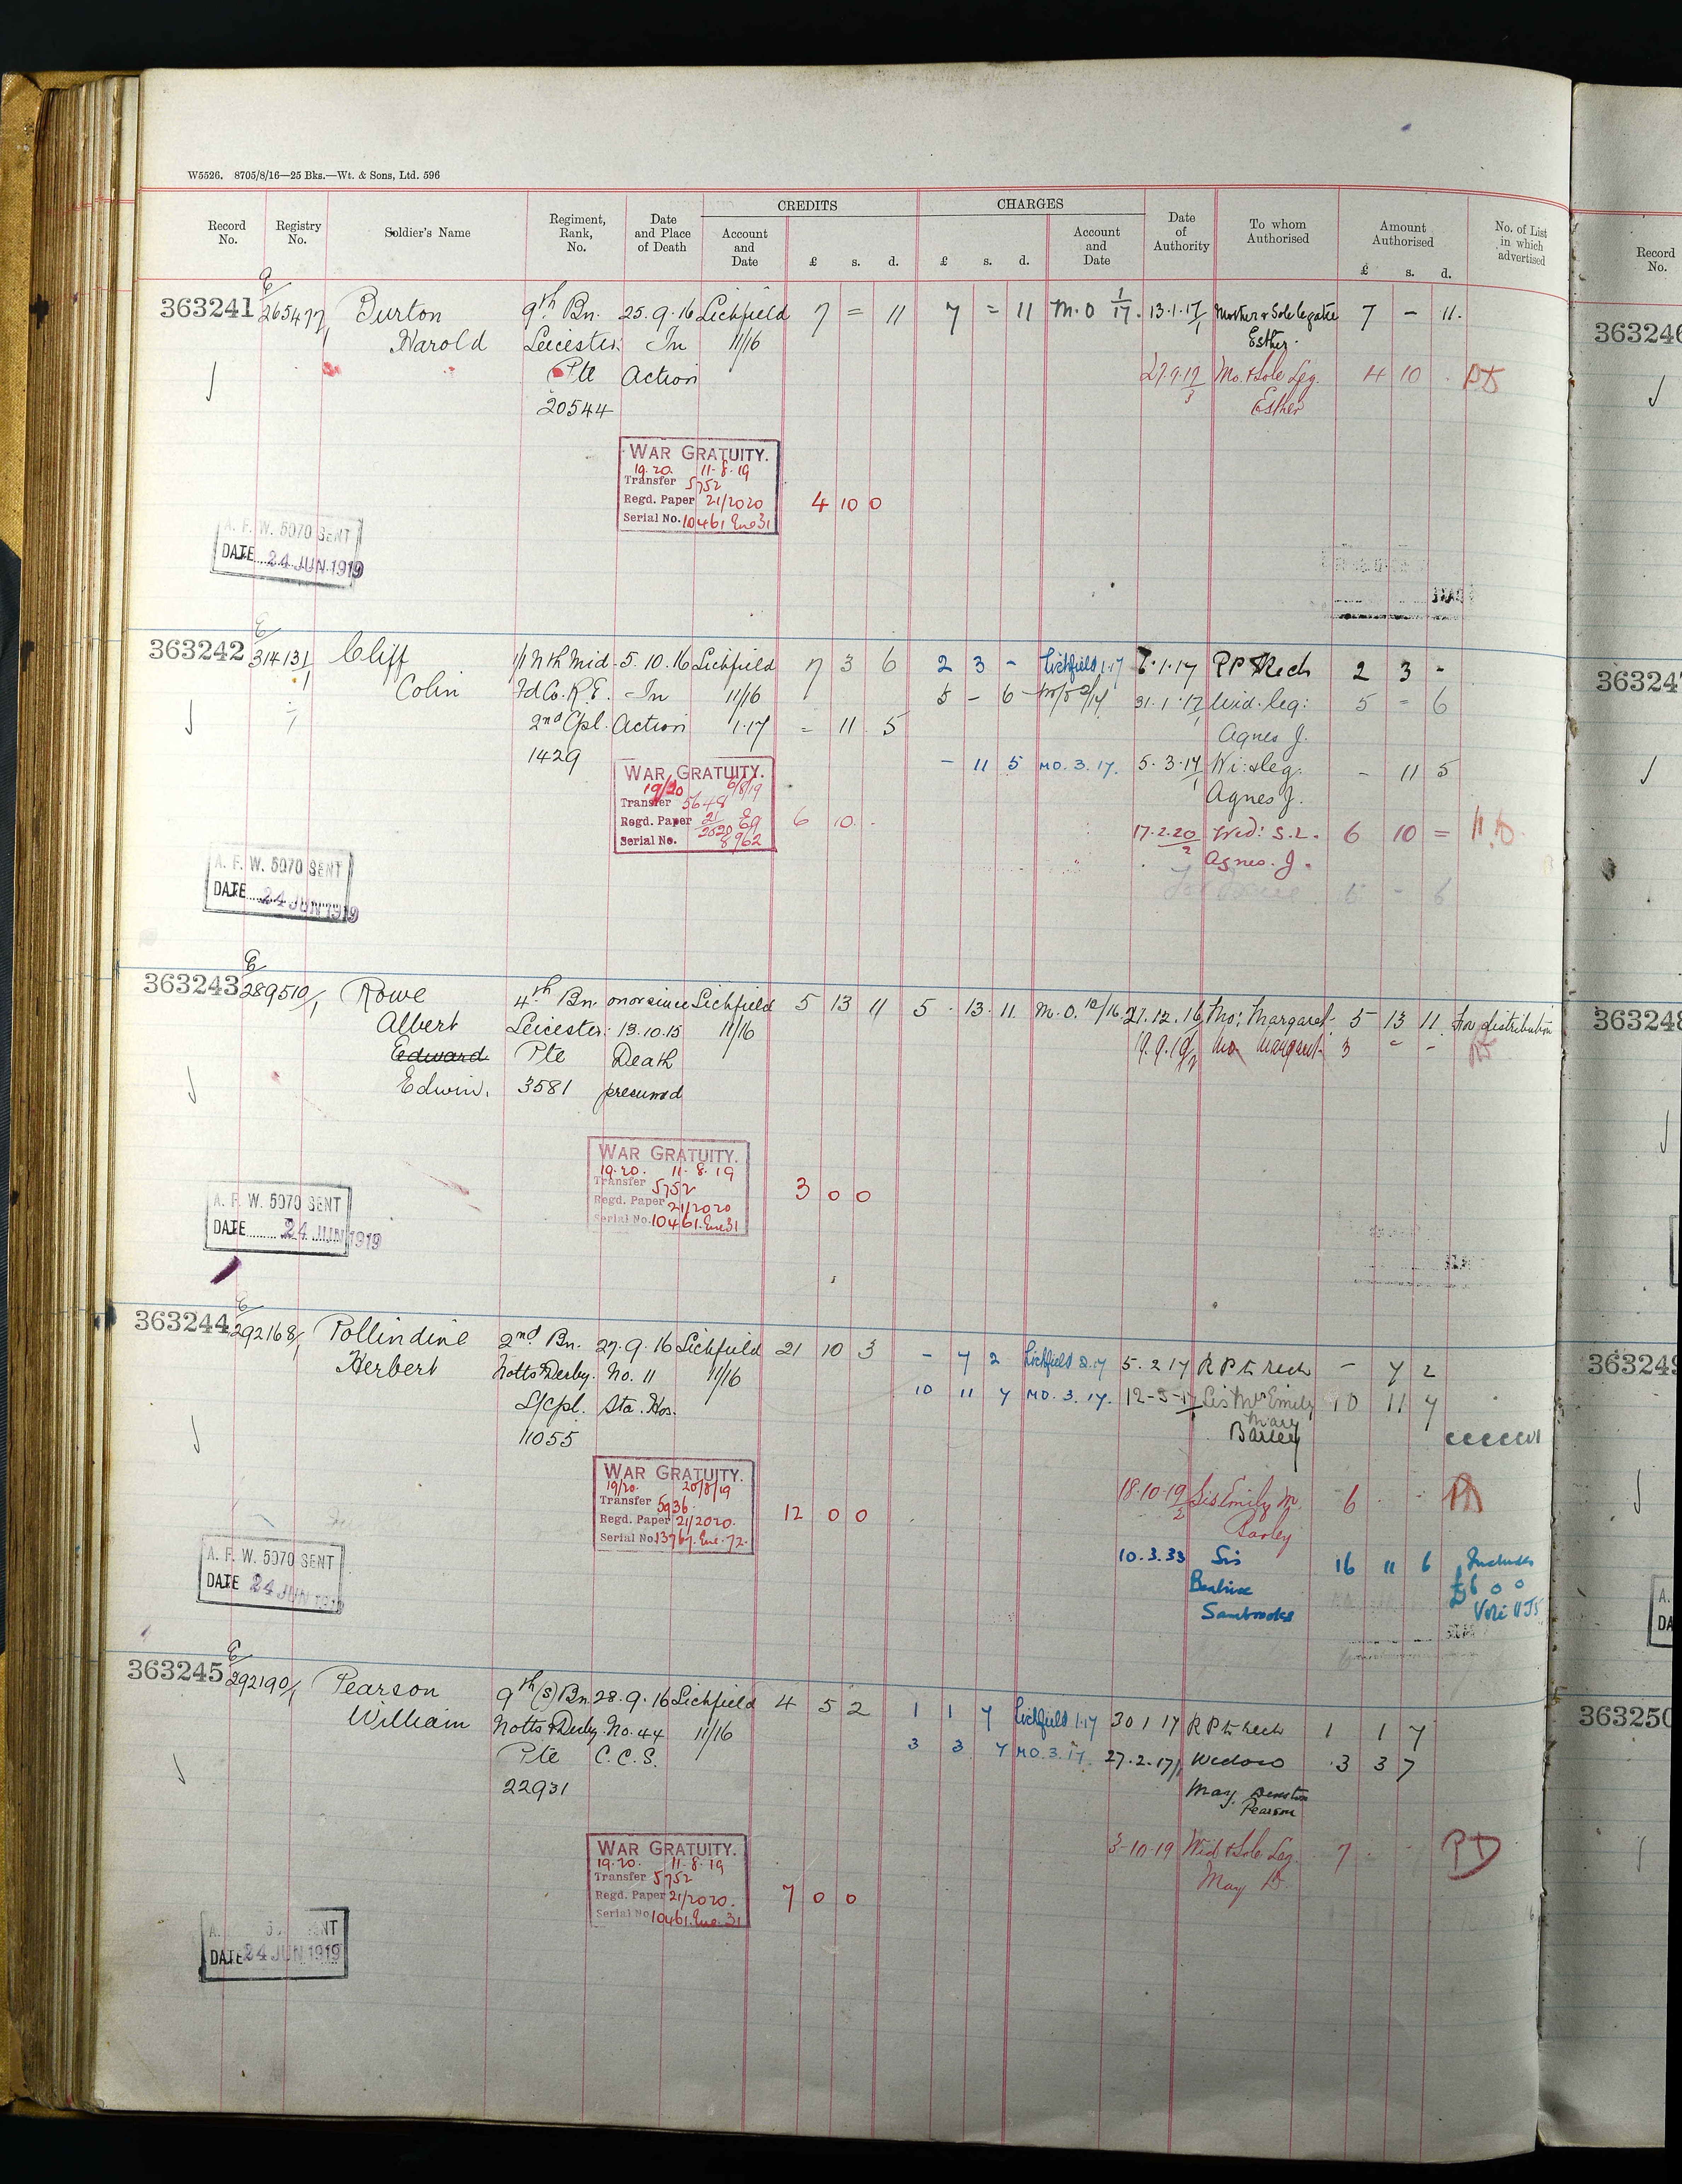 W5526. 8705/8/16—25 Bks.—Wt. & Sons, Ltd. 596
CREDITS CHARGES
Record No. Registry No. Soldier's Name Regiment, Rank, No. Date and Place of Death Account and Date £ s. d. £ s. d. Account and Date Date of Authority To whom Authorised Amount Authorised £ s. d. No. of List in which advertised
Record No.
E
363241 265477/1 Burton 9th Bn. 25.9.16 Lichfield 7 = 11 7 = 11 M.O 1/17. 13.1.17/1 Mother & Sole legatee 7 - 11.
Harold Leicester. In 11/16 Esther.
Pte Action 27.9.19/3 Mo. & Sole Leg. 4 10 .
20544 Esther
WAR GRATUITY.
19.20. 11-8-19
Transfer 5752
Regd. Paper 21/2020 4 10 0
Serial No. 10461 Enc 31
A. F. W. 5070 SENT
DATE 24 JUN 1919
363246
E
363242 314131/1 Cliff 1/1 Nth Mid. 5.10.16 Lichfield 7 3 6 2 3 - Lichfield 1.17 1.17 RP & Rech 2 3 -
Colin Fd Co. R.E. In 11/16 5 - 6 31.1.17/1 Wid. leg: 5 = 6
2nd Cpl. Action 1.17 = 11 5 Agnes J.
1429 - 11 5 MO. 3. 17. 5.3.17/1 Wi: & leg. - 11 5
Agnes J.
WAR GRATUITY.
19/20 6/8/19
Transfer 5648
Regd. Paper 21/2020 6 10 -
Serial No. 8962
17.2.20/2 Wid: S.L. 6 10 =
Agnes. J.
A. F. W. 5070 SENT
DATE 24 JUN 1919
363247
E
363243 289510/1 Rowe 4th Bn. on or since Lichfield 5 13 11 5 . 13. 11. M.O. 12/16. 27.12.16 Mo: Margaret 5 13 11. For distribution
Albert Leicester: 13.10.15 11/16 9.9.19/2 Mo Margaret 3 - -
Edward Pte Death
Edwin. 3581 presumed
WAR GRATUITY.
19.20. 11-8-19
Transfer 5752
Regd. Paper 21/2020 3 0 0
Serial No. 10461. Enc 31
A. F. W. 5070 SENT
DATE 24 JUN 1919
363248
E
363244 292168/1 Pollindine 2nd Bn. 27.9.16 Lichfield 21 10 3 - 7 2 Lichfield 2.17 5.2.17 RP to Rech - 7 2
Herbert Notts & Derby. No. 11 11/16 10 11 7 MO. 3. 17. 12-3-17/1 Sis Mrs Emily 10 11 7
L/Cpl. Sta. Hos. Mary
11055 Barley
WAR GRATUITY.
19/20. 20/8/19
Transfer 5936.
Regd. Paper 21/2020. 12 0 0
Serial No. 13767. Enc. 72.
18.10.19/2 Sis Emily M. 6 . .
Barley
10.3.33 Sis 16 11 6 Includes
Beatrice £6 0 0
Sambrooks
A. F. W. 5070 SENT
DATE 24 JUN 1919
363249
E
363245 292190/1 Pearson 9th (S) Bn 28.9.16 Lichfield 4 5 2 1 1 7 Lichfield 1.17 30 1 17 RP to Rech 1 1 7
William Notts & Derby. No. 44 11/16 3 3 7 MO. 3. 17. 27.2.17/1 Widow 3 3 7
Pte C.C.S. May
22931 Pearson
3-10-19 Wid & Sole Leg. 7 . .
May D.
WAR GRATUITY.
19.20. 11-8-19
Transfer 5752
Regd. Paper 21/2020. 7 0 0
Serial No 10461. Enc. 31
SENT
DATE 24 JUN 1919
363250